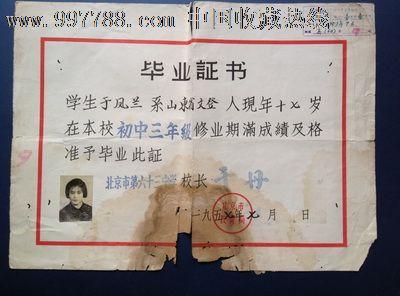 www.997788.com 中国收藏热线
毕业証书
学生于凤兰 系山东省文登 人現年十七岁
在本校初中三年級修业期滿成績及格
准予毕业此証
北京市第六十二中学 校长 于丹
一九五七年七月 日